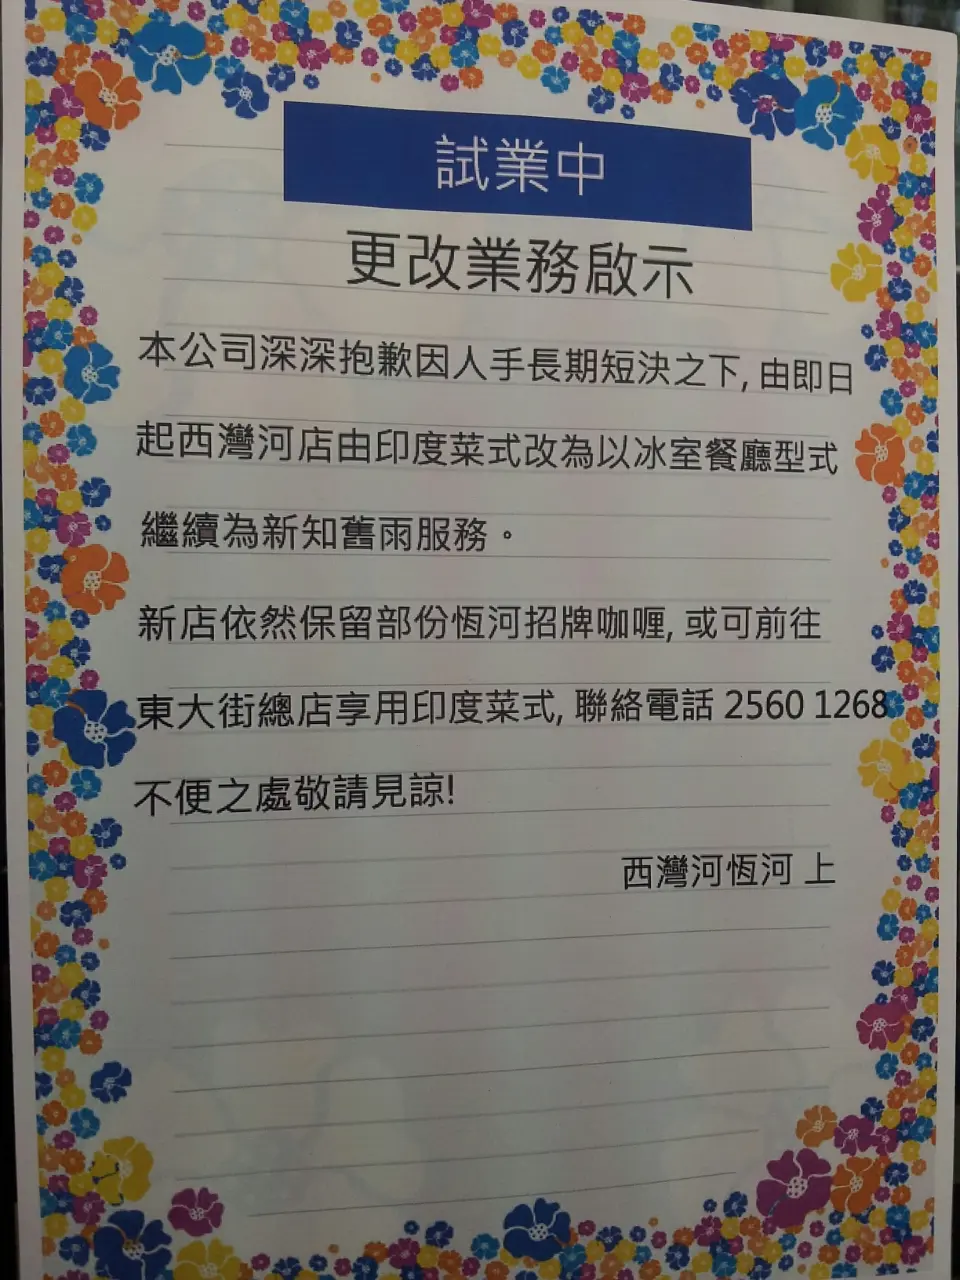 試業中
更改業務啟示
本公司深深抱歉因人手長期短決之下, 由即日
起西灣河店由印度菜式改為以冰室餐廳型式
繼續為新知舊雨服務。
新店依然保留部份恆河招牌咖喱, 或可前往
東大街總店享用印度菜式, 聯絡電話 2560 1268
不便之處敬請見諒!
西灣河恆河 上